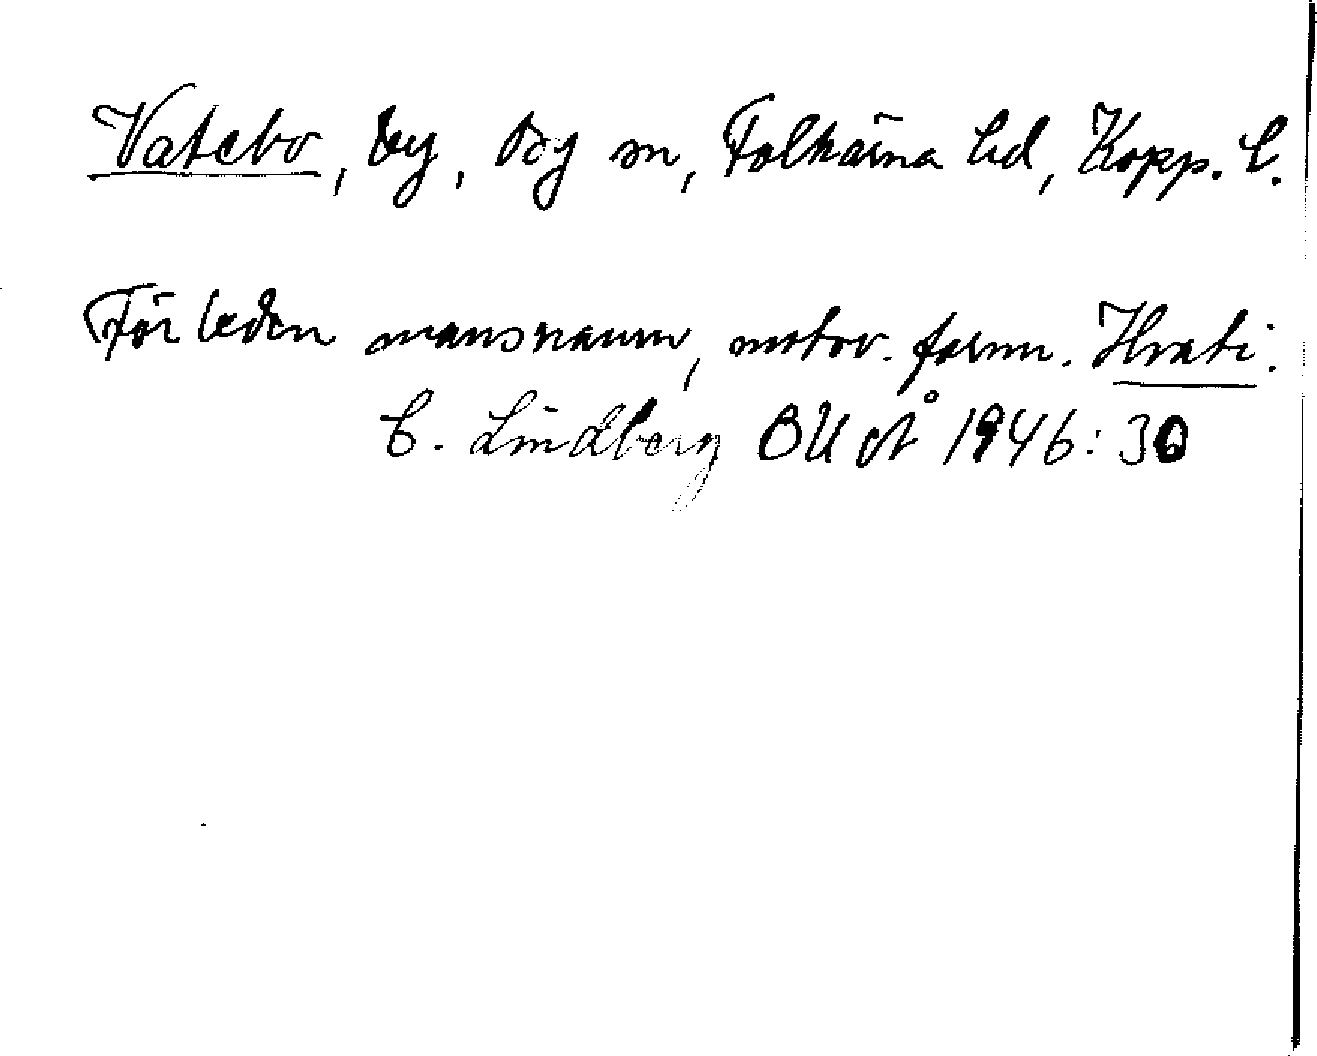 Vatebo, by, By sn, Folkärna hd, Kopp. l.
Förleden mansnamn, motsv. fornn. Hvati.
C. Lindberg OUÅ 1946: 30